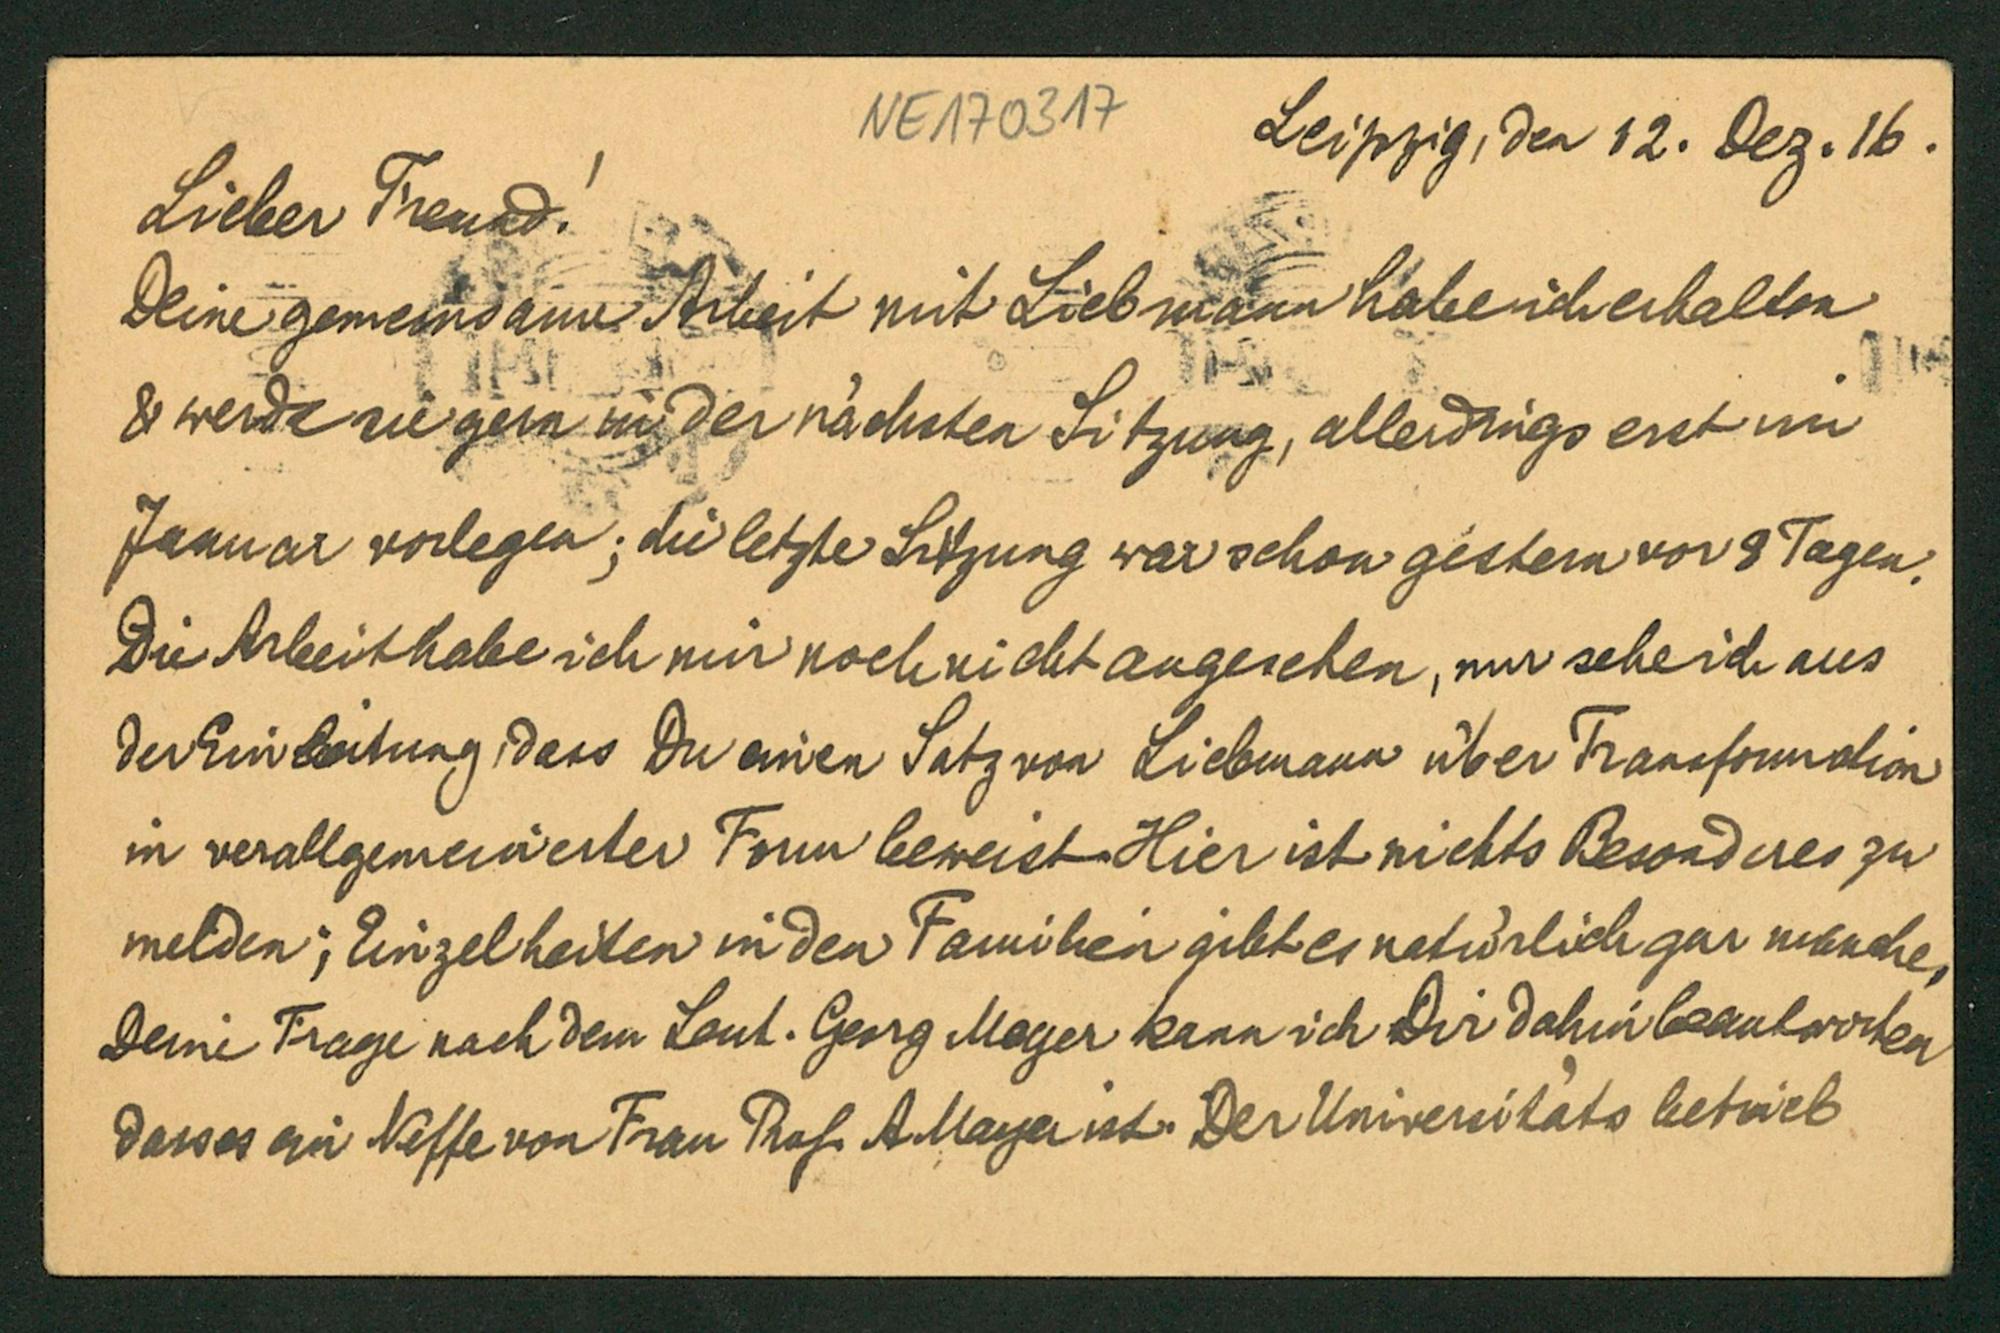 NE170317
Leipzig, den 12. Dez. 16.
Lieber Freund!
Deine gemeinsame Arbeit mit Liebmann habe ich erhalten
& werde sie gern in der nächsten Sitzung, allerdings erst im
Januar vorlegen; die letzte Sitzung war schon gestern vor 8 Tagen.
Die Arbeit habe ich mir noch nicht angesehen, nur sehe ich aus
der Einleitung, dass Du einen Satz von Liebmann über Transformation
in verallgemeinerter Form beweist. Hier ist nichts Besonderes zu
melden; Einzelheiten in den Familien gibt es natürlich gar manche,
Deine Frage nach dem Leut. Georg Meyer kann ich Dir dahin beantworten
dass es ein Neffe von Frau Prof. A. Mayer ist. Der Universitäts betrieb